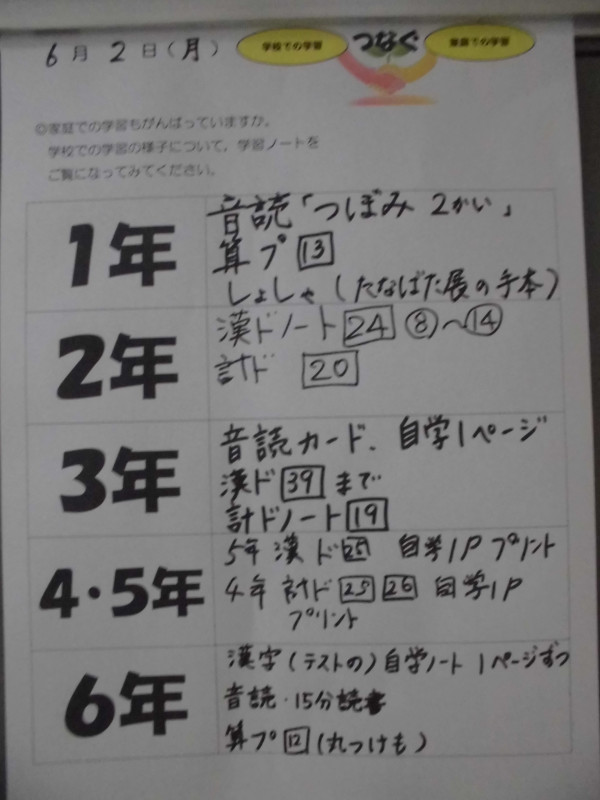 6月2日(月)
学校での学習 つなぐ 家庭での学習
◎家庭での学習もがんばっていますか。
学校での学習の様子について、学習ノートを
ご覧になってみてください。
1年
音読「つぼみ 2かい」
算プ 13
しょしゃ(たなばた展の手本)
2年
漢ドノート 24 ⑧~⑭
計ド 20
3年
音読カード、自学1ページ
漢ド 39 まで
計ドノート 19
4・5年
5年 漢ド 25 自学1P プリント
4年 計ド 25 26 自学1P
プリント
6年
漢字(テストの)自学ノート 1ページずつ
音読・15分読書
算プ 12 (丸つけも)